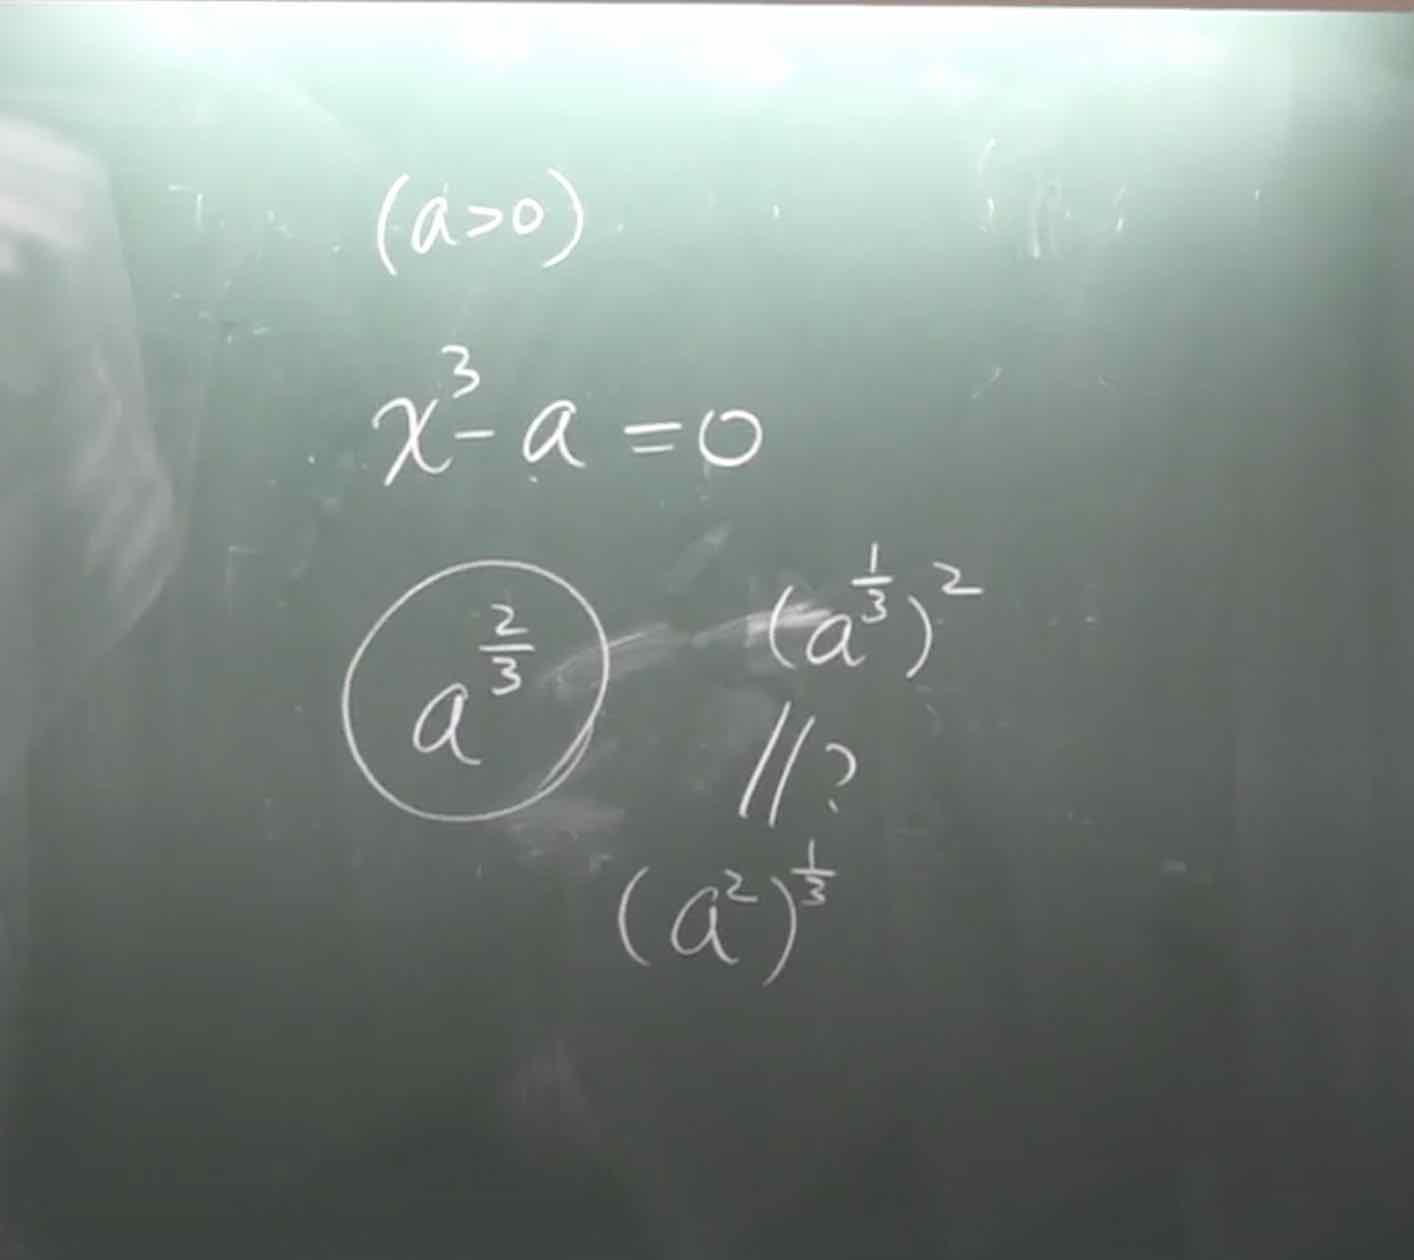 (a>0)
x³-a=0
a^{2/3}
(a^{1/3})²
// ?
(a²)^{1/3}